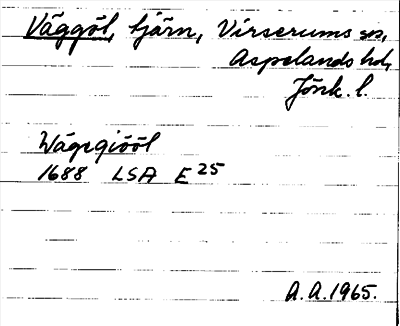 Väggöl, tjärn, Virserums sn,
Aspelands hd,
Jönk. l.
Wägegiööl
1688 LSA E 25
A.A. 1965.